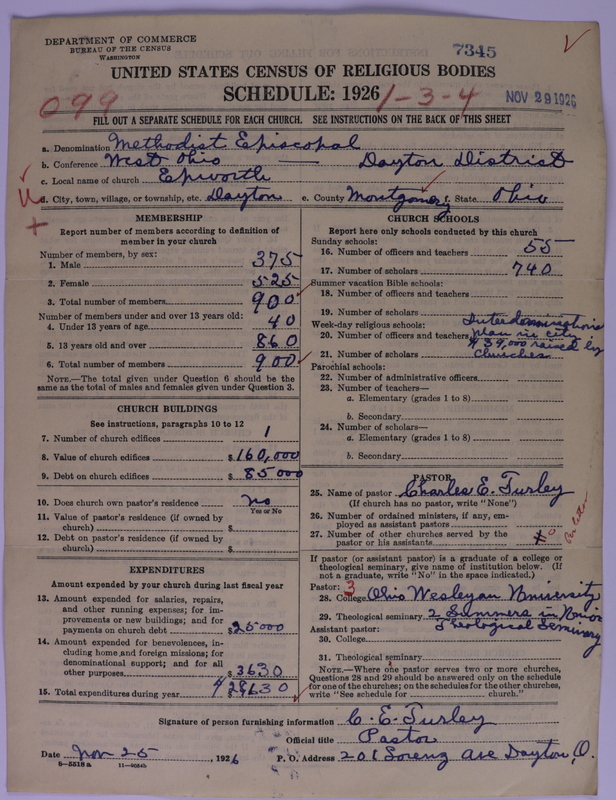 DEPARTMENT OF COMMERCE
BUREAU OF THE CENSUS
WASHINGTON
7345
UNITED STATES CENSUS OF RELIGIOUS BODIES
SCHEDULE: 1926
099
1-3-4
NOV 29 1926
FILL OUT A SEPARATE SCHEDULE FOR EACH CHURCH. SEE INSTRUCTIONS ON THE BACK OF THIS SHEET
a. Denomination Methodist Episcopal
b. Conference West Ohio — Dayton District
c. Local name of church Epworth
d. City, town, village, or township, etc. Dayton e. County Montgomery f. State Ohio
MEMBERSHIP
Report number of members according to definition of
member in your church
Number of members, by sex:
1. Male 375
2. Female 525
3. Total number of members 900
Number of members under and over 13 years old:
4. Under 13 years of age 40
5. 13 years old and over 860
6. Total number of members 900
NOTE.—The total given under Question 6 should be the
same as the total of males and females given under Question 3.
CHURCH BUILDINGS
See instructions, paragraphs 10 to 12
7. Number of church edifices 1
8. Value of church edifices $160,000
9. Debt on church edifices $85000
10. Does church own pastor's residence No
Yes or No
11. Value of pastor's residence (if owned by
church) $
12. Debt on pastor's residence (if owned by
church) $
EXPENDITURES
Amount expended by your church during last fiscal year
13. Amount expended for salaries, repairs,
and other running expenses; for im-
provements or new buildings; and for
payments on church debt $25000
14. Amount expended for benevolences, in-
cluding home and foreign missions; for
denominational support; and for all
other purposes $3630
15. Total expenditures during year $28630
CHURCH SCHOOLS
Report here only schools conducted by this church
Sunday schools:
16. Number of officers and teachers 55
17. Number of scholars 740
Summer vacation Bible schools:
18. Number of officers and teachers
19. Number of scholars
Week-day religious schools: Interdenominations
20. Number of officers and teachers plan in city
$39,000 raised by
21. Number of scholars Churches
Parochial schools:
22. Number of administrative officers
23. Number of teachers—
a. Elementary (grades 1 to 8)
b. Secondary
24. Number of scholars—
a. Elementary (grades 1 to 8)
b. Secondary
PASTOR
25. Name of pastor Charles E. Turley
(If church has no pastor, write "None")
26. Number of ordained ministers, if any, em-
ployed as assistant pastors
27. Number of other churches served by the
pastor or his assistants 0
Per letter
If pastor (or assistant pastor) is a graduate of a college or
theological seminary, give name of institution below. (If
not a graduate, write "No" in the space indicated.)
Pastor: 3
28. College Ohio Wesleyan University
29. Theological seminary 2 Summers in Union
Assistant pastor: Theological Seminary
30. College
31. Theological seminary
NOTE.—Where one pastor serves two or more churches,
Questions 28 and 29 should be answered only on the schedule
for one of the churches; on the schedules for the other churches,
write "See schedule for church."
Signature of person furnishing information C. E. Turley
Official title Pastor
Date Nov 25, 1926 P. O. Address 201 Lorenz Ave Dayton, O.
8-5518a 11-9054b